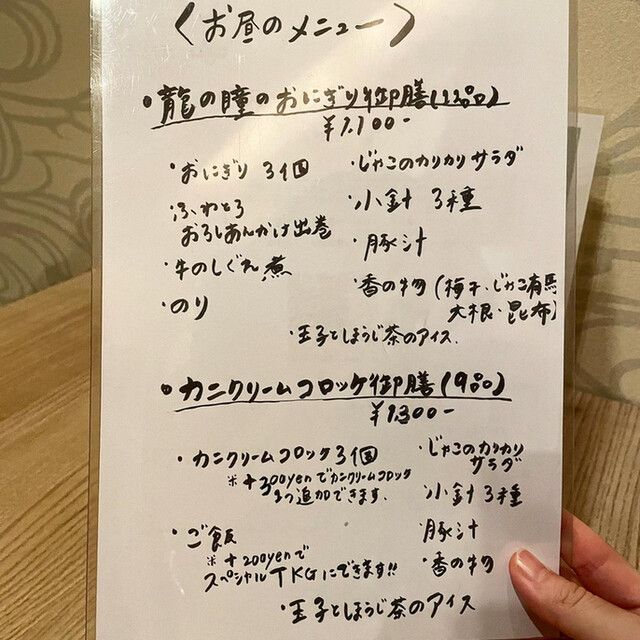 〈お昼のメニュー〉
・龍の瞳のおにぎり御膳(12品)
¥1,100-
・おにぎり 3個
・じゃこのカリカリサラダ
ふわとろ
おろしあんかけ出巻
・小鉢 3種
・豚汁
・牛のしぐれ煮
・のり
・香の物(梅干・じゃこ有馬
大根・昆布)
・玉子とほうじ茶のアイス
・カニクリームコロッケ御膳(9品)
¥1,300-
・カニクリームコロッケ3個
※+300yenでカニクリームコロッケ
1つ追加できます.
・じゃこのカリカリ
サラダ
小鉢3種
・ご飯
※+200yenで
スペシャルTKGにできます!!
豚汁
・香の物
・玉子とほうじ茶のアイス